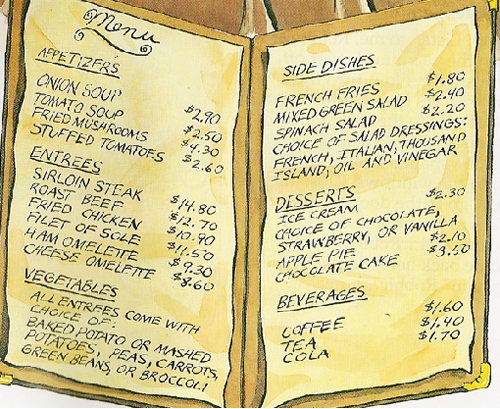 Menu
APPETIZERS
ONION SOUP $2.90
TOMATO SOUP $2.50
FRIED MUSHROOMS $4.30
STUFFED TOMATOES $2.60
ENTREES
SIRLOIN STEAK $14.80
ROAST BEEF $12.70
FRIED CHICKEN $10.90
FILET OF SOLE $11.50
HAM OMELETTE $9.30
CHEESE OMELETTE $8.60
VEGETABLES
ALL ENTREES COME WITH
CHOICE OF:
BAKED POTATO OR MASHED
POTATOES, PEAS, CARROTS,
GREEN BEANS, OR BROCCOLI
SIDE DISHES
FRENCH FRIES $1.80
MIXED GREEN SALAD $2.40
SPINACH SALAD $2.20
CHOICE OF SALAD DRESSINGS:
FRENCH, ITALIAN, THOUSAND
ISLAND, OIL AND VINEGAR
DESSERTS
ICE CREAM $2.30
CHOICE OF CHOCOLATE,
STRAWBERRY, OR VANILLA
APPLE PIE $2.10
CHOCOLATE CAKE $3.50
BEVERAGES
COFFEE $1.60
TEA $1.40
COLA $1.70